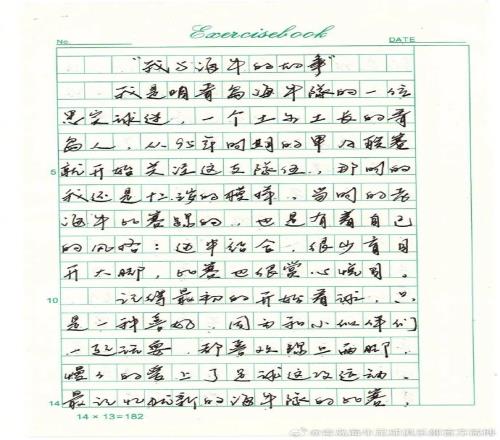 Exercisebook
No.
DATE
"我与海牛的故事"
我是咱青岛海牛队的一位
忠实球迷，一个土生土长的青
岛人，从95年时期的甲B联赛
5 就开始关注这支队伍，那时的
我还是十二岁的模样。当时的老
海牛比赛踢的，也是有着自己
的风格：边中结合，很少盲目
开大脚，比赛也很赏心悦目。
10 记得最初的开始看球，只
是一种喜好，周与和小伙伴们
一起玩耍，都喜欢踢上两脚，
慢慢的爱上了足球这项运动。
14 最记忆犹新的海牛队的比赛，
14×13=182